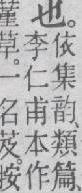 也。
依集韻、類篇
李仁甫本作
菫草。一名芨。按